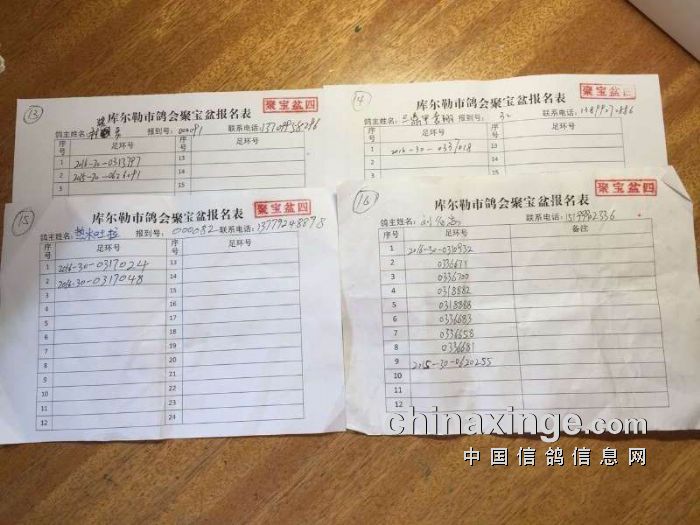 13
聚宝盆四
库尔勒市鸽会聚宝盆报名表
鸽主姓名: 报到号: 000091 联系电话: 13709958286
序号 足环号 序号 足环号
1 2016-30-0313797 13
2 2015-30-0626091 14
3 15
14
聚宝盆四
库尔勒市鸽会聚宝盆报名表
鸽主姓名: 报到号: 32 联系电话:
序号 足环号 序号 足环号
1 2016-30-0337018 13
2 14
3 15
15
聚宝盆四
库尔勒市鸽会聚宝盆报名表
鸽主姓名: 热米吐拉 报到号: 000082 联系电话: 13779248898
序号 足环号 序号 足环号
1 2016-30-0317024 13
2 2016-30-0317048 14
3 15
4 16
5 17
6 18
7 19
8 20
9 21
10 22
11 23
12 24
16
聚宝盆四
库尔勒市鸽会聚宝盆报名表
鸽主姓名: 联系电话:
序号 足环号 备注
1 2016-30-0310932
2 0336671
3 0336700
4 0318882
5 0318888
6 0336683
7 0336658
8 0336681
9 2015-30-0620255
10
11
12
chinaxinge.com
中国信鸽信息网